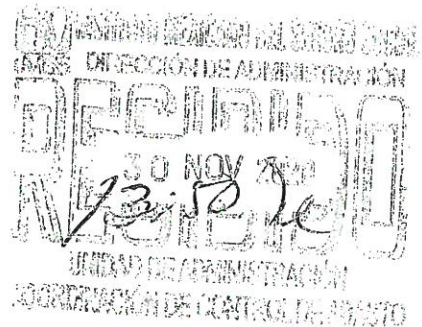 IMSS INSTITUTO MEXICANO DEL SEGURO SOCIAL
DIRECCIÓN DE ADMINISTRACIÓN
RECIBIDO
30 NOV
13:50
UNIDAD DE ADMINISTRACIÓN
COORDINACIÓN DE CONTROL DE ABASTO